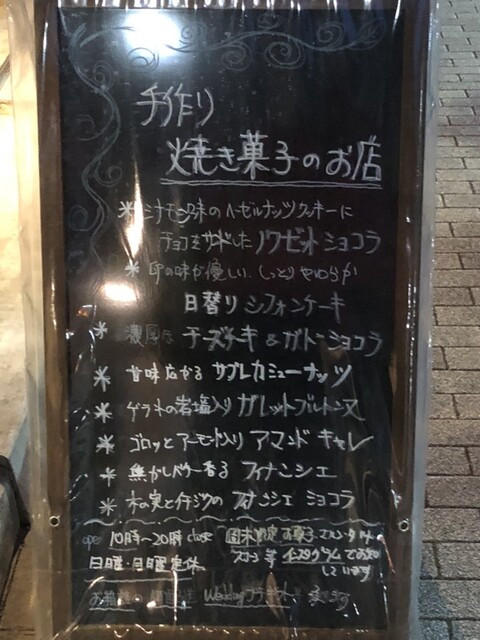 手作り
焼き菓子のお店
* シナモン味のヘーゼルナッツクッキーに
チョコをサンドした ノワゼットショコラ
* 卵の味が優しい しっとりやわらか
日替り シフォンケーキ
* 濃厚な チーズケーキ & ガトーショコラ
* 甘味広がる サブレカシューナッツ
* ゲランドの岩塩入り ガレットブルトンヌ
* ゴロッとアーモンド入り アマンド キャレ
* 焦がしバター香る フィナンシェ
* 木の実とイチジクの フィナンシェ ショコラ
open 10時〜20時 close 週末限定 お菓子
日曜・月曜定休 スコーン 等 インスタグラムでお知らせ
しています
Wedding プチギフト